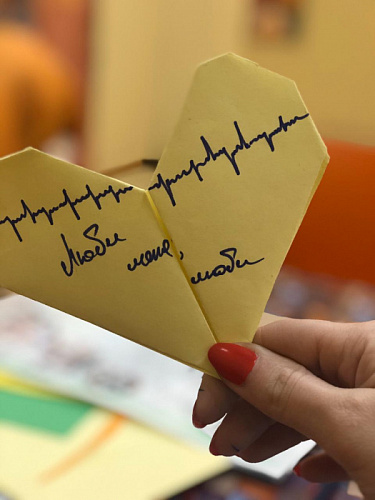 Люби меня, люби